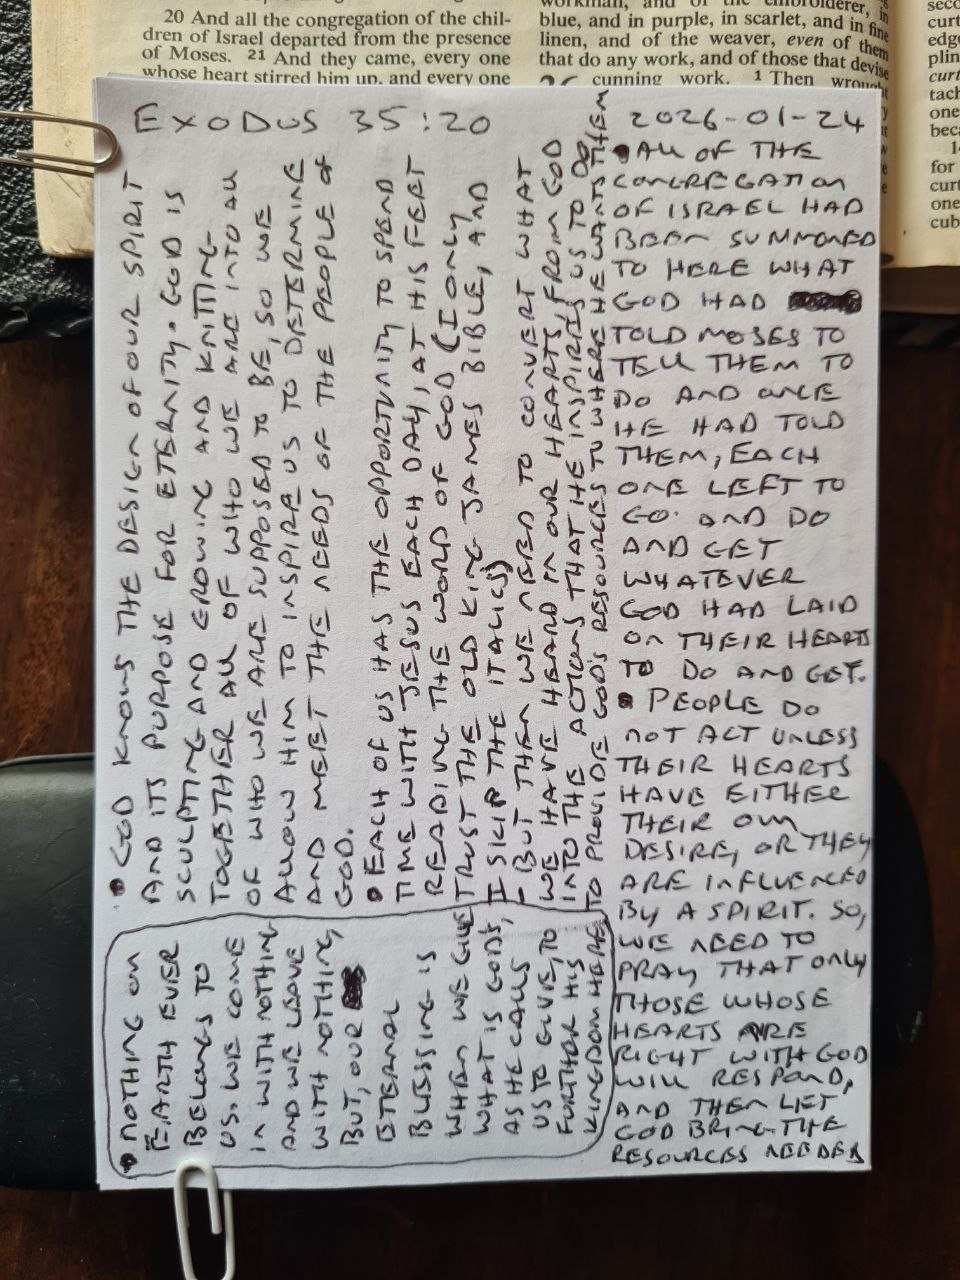 20 And all the congregation of the chil-
dren of Israel departed from the presence
of Moses. 21 And they came, every one
whose heart stirred him up, and every one
workman, and of the embroiderer, in
blue, and in purple, in scarlet, and in fine
linen, and of the weaver, even of them
that do any work, and of those that devise
cunning work. 1 Then wrought
curt
edge
plin
curt
tach
one
beca
for
curt
one
cub
EXODUS 35:20
2026-01-24
• ALL OF THE
CONGREGATION
OF ISRAEL HAD
BEEN SUMMONED
TO HERE WHAT
GOD HAD
TOLD MOSES TO
TELL THEM TO
DO AND ONCE
HE HAD TOLD
THEM, EACH
ONE LEFT TO
GO AND DO
AND GET
WHATEVER
GOD HAD LAID
ON THEIR HEARTS
TO DO AND GET.
• PEOPLE DO
NOT ACT UNLESS
THEIR HEARTS
HAVE EITHER
THEIR OWN
DESIRE, OR THEY
ARE INFLUENCED
BY A SPIRIT. SO,
WE NEED TO
PRAY THAT ONLY
THOSE WHOSE
HEARTS ARE
RIGHT WITH GOD
WILL RESPOND,
AND THEN LET
GOD BRING THE
RESOURCES NEEDED
• GOD KNOWS THE DESIGN OF OUR SPIRIT
AND ITS PURPOSE FOR ETERNITY. GOD IS
SCULPTING AND GROWING AND KNITTING
TOGETHER ALL OF WHO WE ARE INTO ALL
OF WHO WE ARE SUPPOSED TO BE, SO WE
ALLOW HIM TO INSPIRE US TO DETERMINE
AND MEET THE NEEDS OF THE PEOPLE OF
GOD.
• EACH OF US HAS THE OPPORTUNITY TO SPEND
TIME WITH JESUS EACH DAY, AT HIS FEET
READING THE WORD OF GOD (I ONLY
TRUST THE OLD KING JAMES BIBLE, AND
I SKIP THE ITALICS)
- BUT THEN WE NEED TO CONVERT WHAT
WE HAVE HEARD IN OUR HEARTS, FROM GOD
INTO THE ACTIONS THAT HE INSPIRES US TO DO
TO PROVIDE GOD'S RESOURCES TO WHERE HE WANTS THEM
• NOTHING ON
EARTH EVER
BELONGS TO
US. WE COME
IN WITH NOTHING
AND WE LEAVE
WITH NOTHING,
BUT, OUR
ETERNAL
BLESSING IS
WHEN WE GIVE
WHAT IS GOD'S,
AS HE CALLS
US TO GIVE, TO
FURTHER HIS
KINGDOM HERE